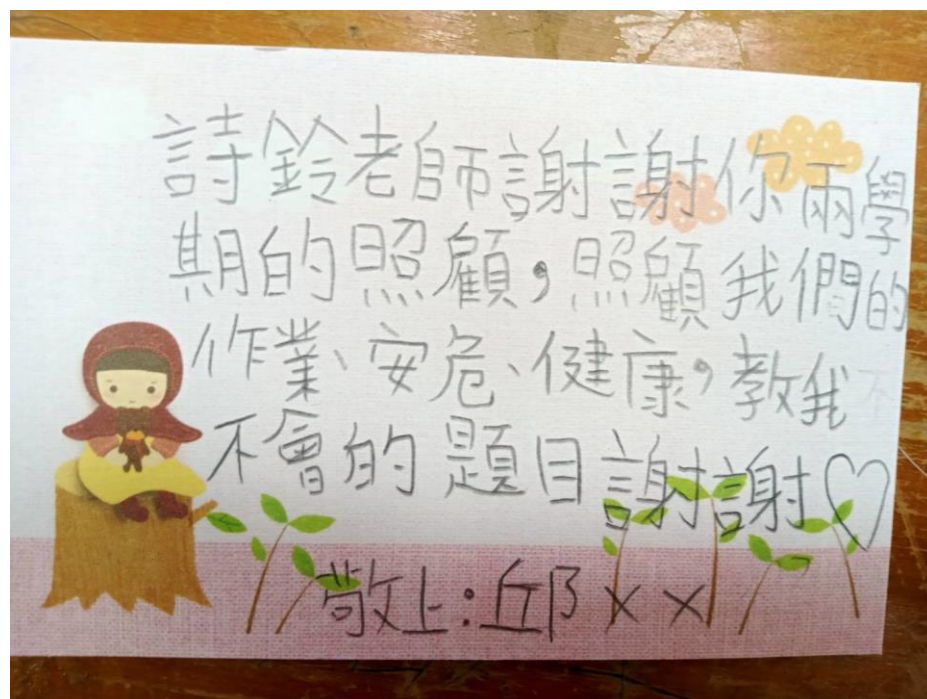 詩鈴老師謝謝你兩學
期的照顧，照顧我們的
作業、安危、健康，教我
不會的題目謝謝♡
敬上：邱××